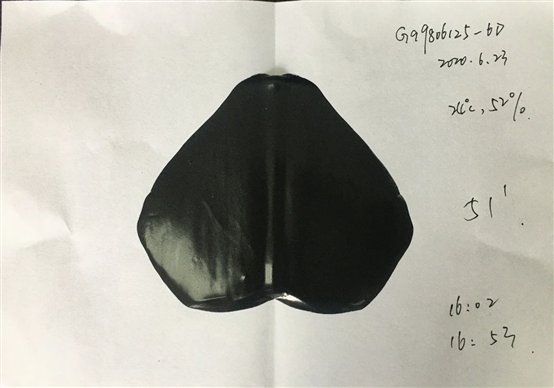 G99806125-6D
2020.6.23
24°C, 52%.
51'
16:02
16:53